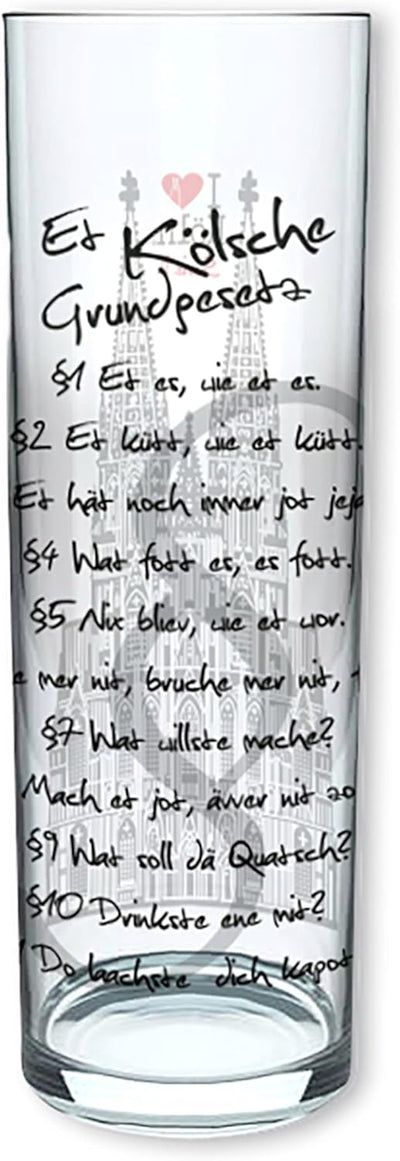 Et Kölsche
Grundgesetz
§1 Et es, wie et es.
§2 Et kütt, wie et kütt.
Et hät noch immer jot
§4 Wat fott es, es fott.
§5 Nix bliev, wie et wor.
mer nit, bruche mer nit,
§7 Wat willste mache?
Mach et jot, ävver nit
§9 Wat soll dä Quatsch?
§10 Drinkste ene mit?
Do laachste dich kapot